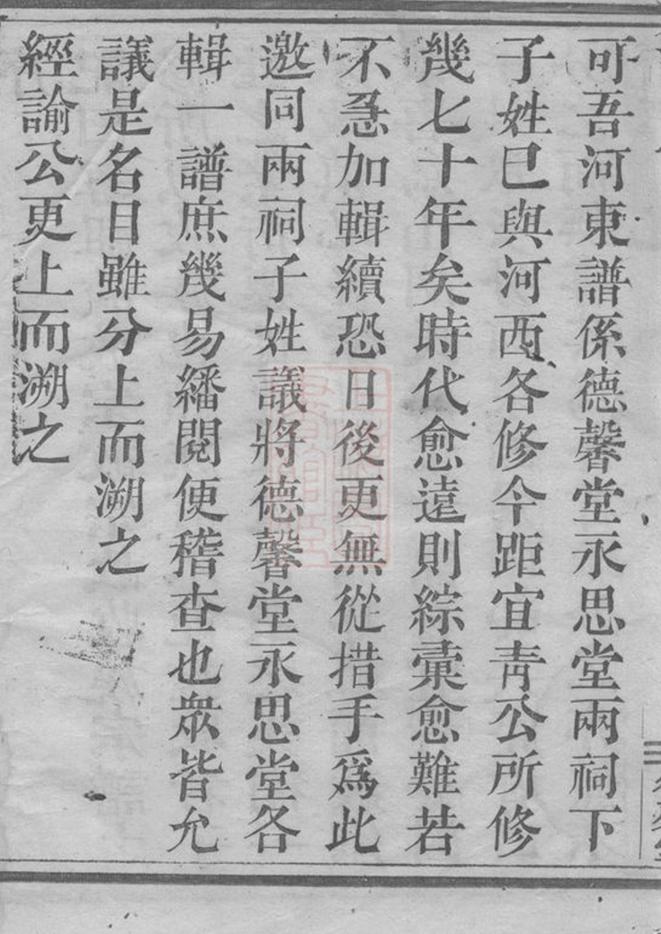 可吾河東譜係德馨堂永思堂兩祠下
子姓巳與河西各修今距宜青公所修
幾七十年矣時代愈遠則綜彙愈難若
不急加輯續恐日後更無從措手爲此
邀同兩祠子姓議將德馨堂永思堂各
輯一譜庶幾易繙閱便稽查也衆皆允
議是名目雖分上而溯之
經諭公更上而溯之